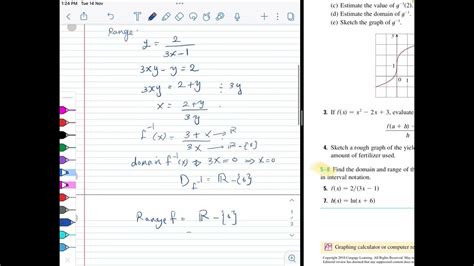 1:24 PM Tue 14 Nov
Range:
y = 2/(3x-1)
3xy - y = 2
3xy = 2+y ÷ 3y
x = (2+y)/(3y)
f⁻¹(x) = (3+x → R)/(3x → R-{0})
domain f⁻¹(x) → 3x = 0 → x = 0
D_f⁻¹ = R-{0}
Range f = R-{0}
(c) Estimate the value of g⁻¹(2).
(d) Estimate the domain of g⁻¹.
(e) Sketch the graph of g⁻¹.
y
1
0 1
3. If f(x) = x² - 2x + 3, evaluate
f(a + h) -
h
4. Sketch a rough graph of the yield
amount of fertilizer used.
5–8 Find the domain and range of th
in interval notation.
5. f(x) = 2/(3x - 1)
7. h(x) = ln(x + 6)
Graphing calculator or computer re
Copyright 2016 Cengage Learning. All Rights Reserved. May